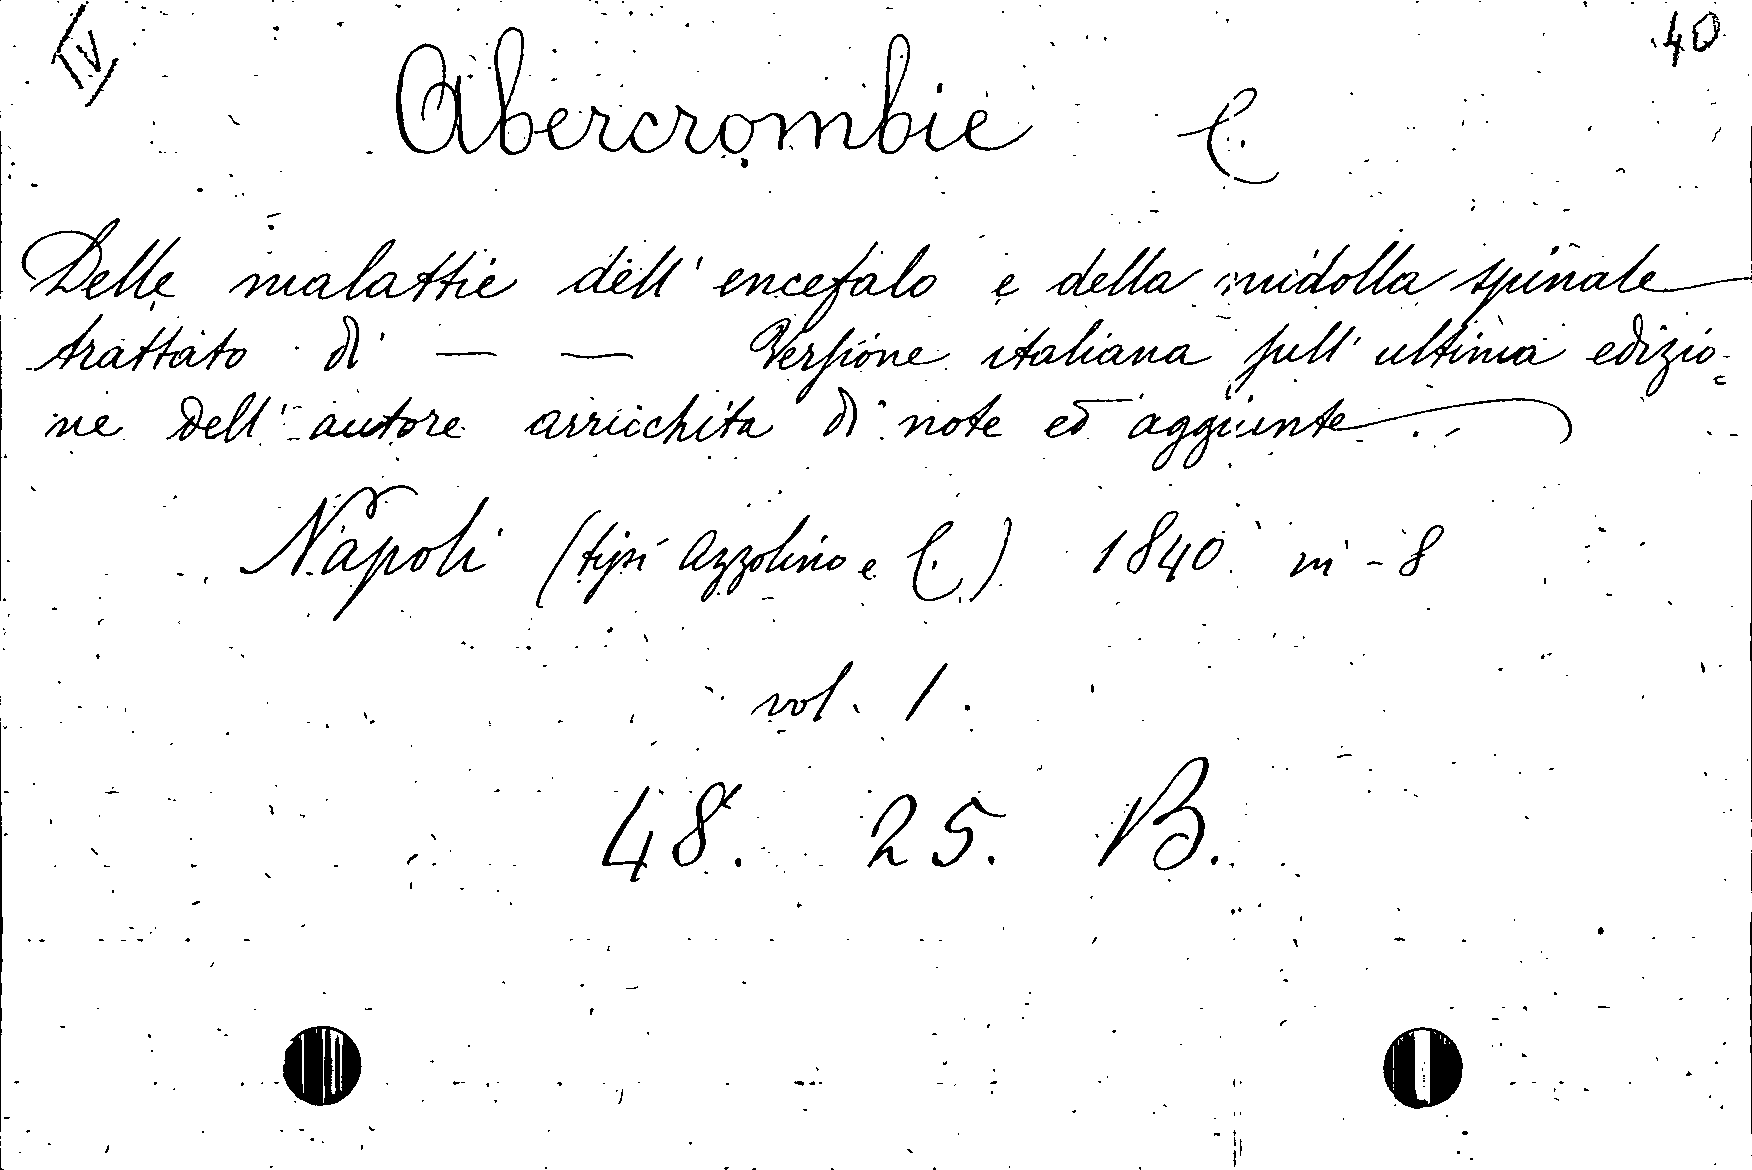 IV 40
Abercrombie C.
Delle malattie dell' encefalo e della midolla spinale
trattato di — — Versione italiana sull' ultima edizio-
ne dell' autore arricchita di note ed aggiunte
Napoli (tipi Azzolino e C.) 1840 in-8
vol. 1.
48. 25. B.